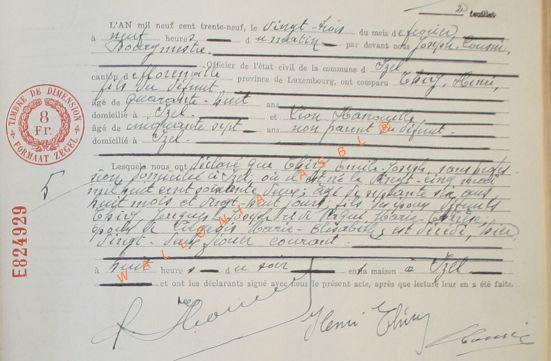 2e feuillet
L'AN mil neuf cent trente-neuf, le vingt-trois du mois de février
à neuf heures du matin par devant nous Joseph,
Bourgmestre,
Officier de l'état civil de la commune d' Izel
canton de Florenville province de Luxembourg, ont comparu Théry, Henri,
fils du défunt,
âgé de quarante-huit ans
domicilié à Izel et Léon Hanouille
âgé de cinquante sept ans non parent du défunt
domicilié à Izel
Lesquels nous ont déclaré que Théry Emile Joseph, sans profes-
sion, domicilié à Izel, où il est né le vingt-cinq mai
mil huit cent soixante deux; âgé de septante six ans
huit mois et vingt huit jours, fils des époux défunts
Théry Jacques Joseph et de Marie
époux de Marie Elisabeth, est décédé, hier
vingt-deux février courant
à huit heures du soir en sa maison à Izel
et ont les déclarants signé avec nous le présent acte, après que lecture leur en a été faite.
Henri Théry
TIMBRE DE DIMENSION
8
Fr.
FORMAAT ZEGEL
E824929
WALLONIA ASBL